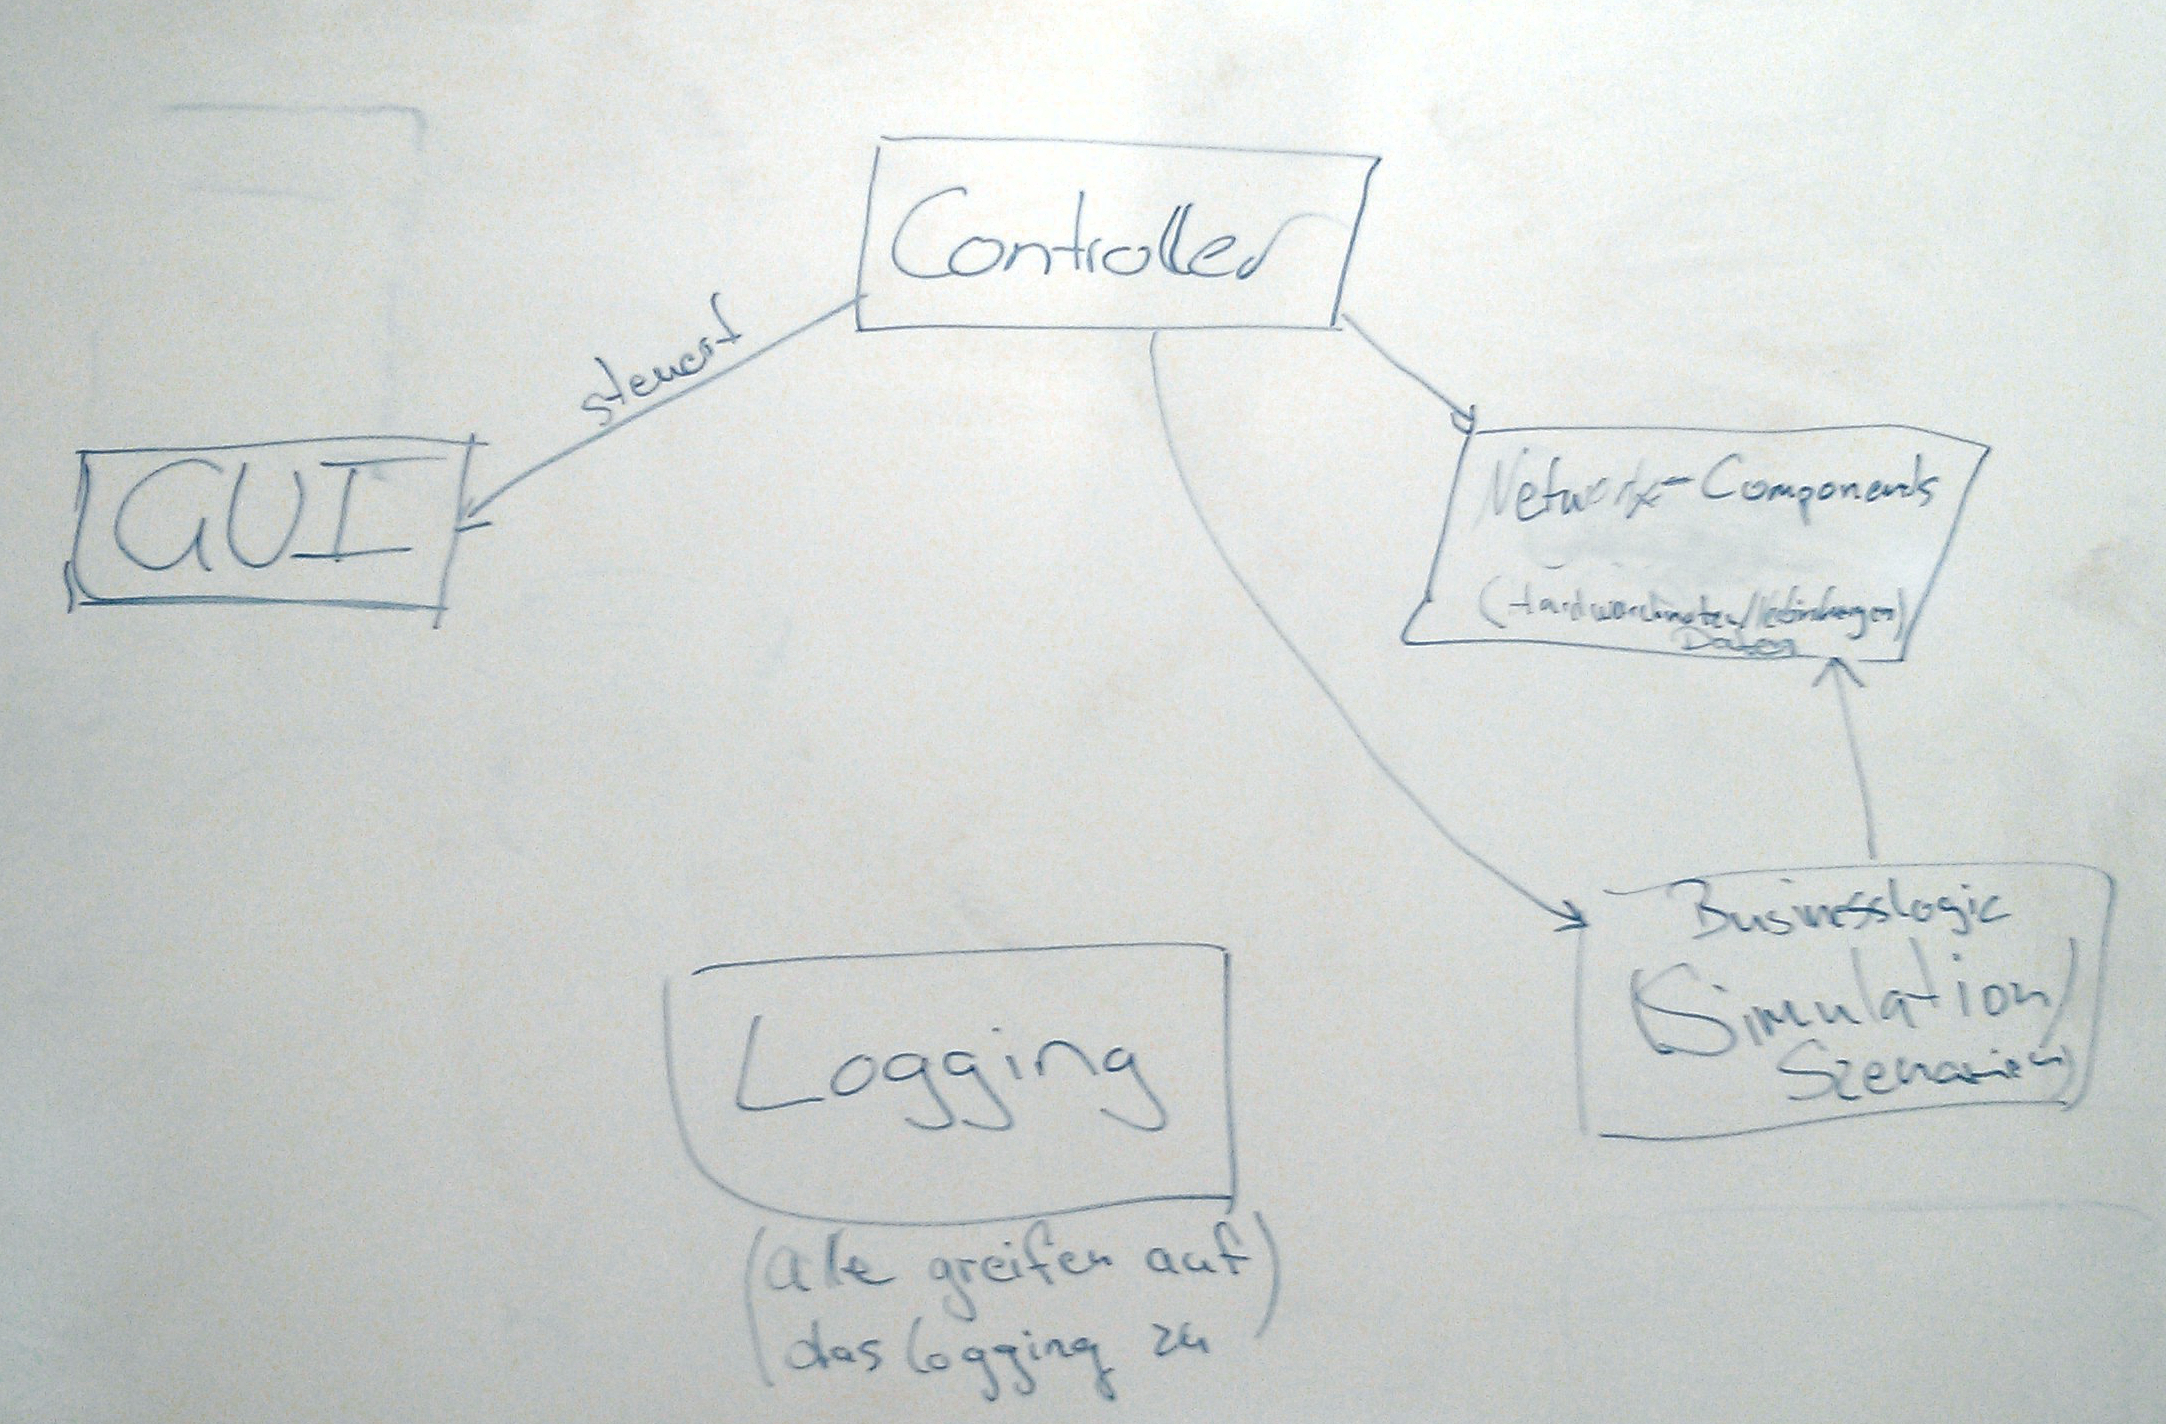 Controller
steuert
GUI
Network-Components
(Hardwareknoten/Verbindungen)
Daten
Businesslogic
(Simulation/
Szenarien)
Logging
(alle greifen auf)
das Logging zu